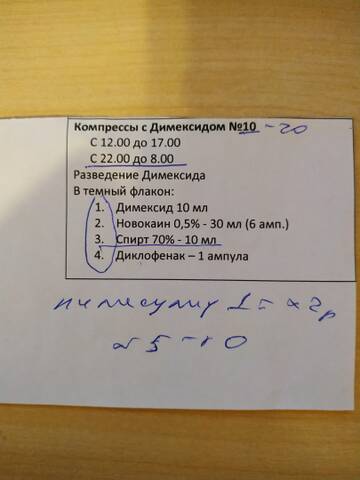 Компрессы с Димексидом №10 - 20
С 12.00 до 17.00
С 22.00 до 8.00
Разведение Димексида
В темный флакон:
1. Димексид 10 мл
2. Новокаин 0,5% - 30 мл (6 амп.)
3. Спирт 70% - 10 мл
4. Диклофенак – 1 ампула
нимесулид 1т х 2р
№ 5 - 10